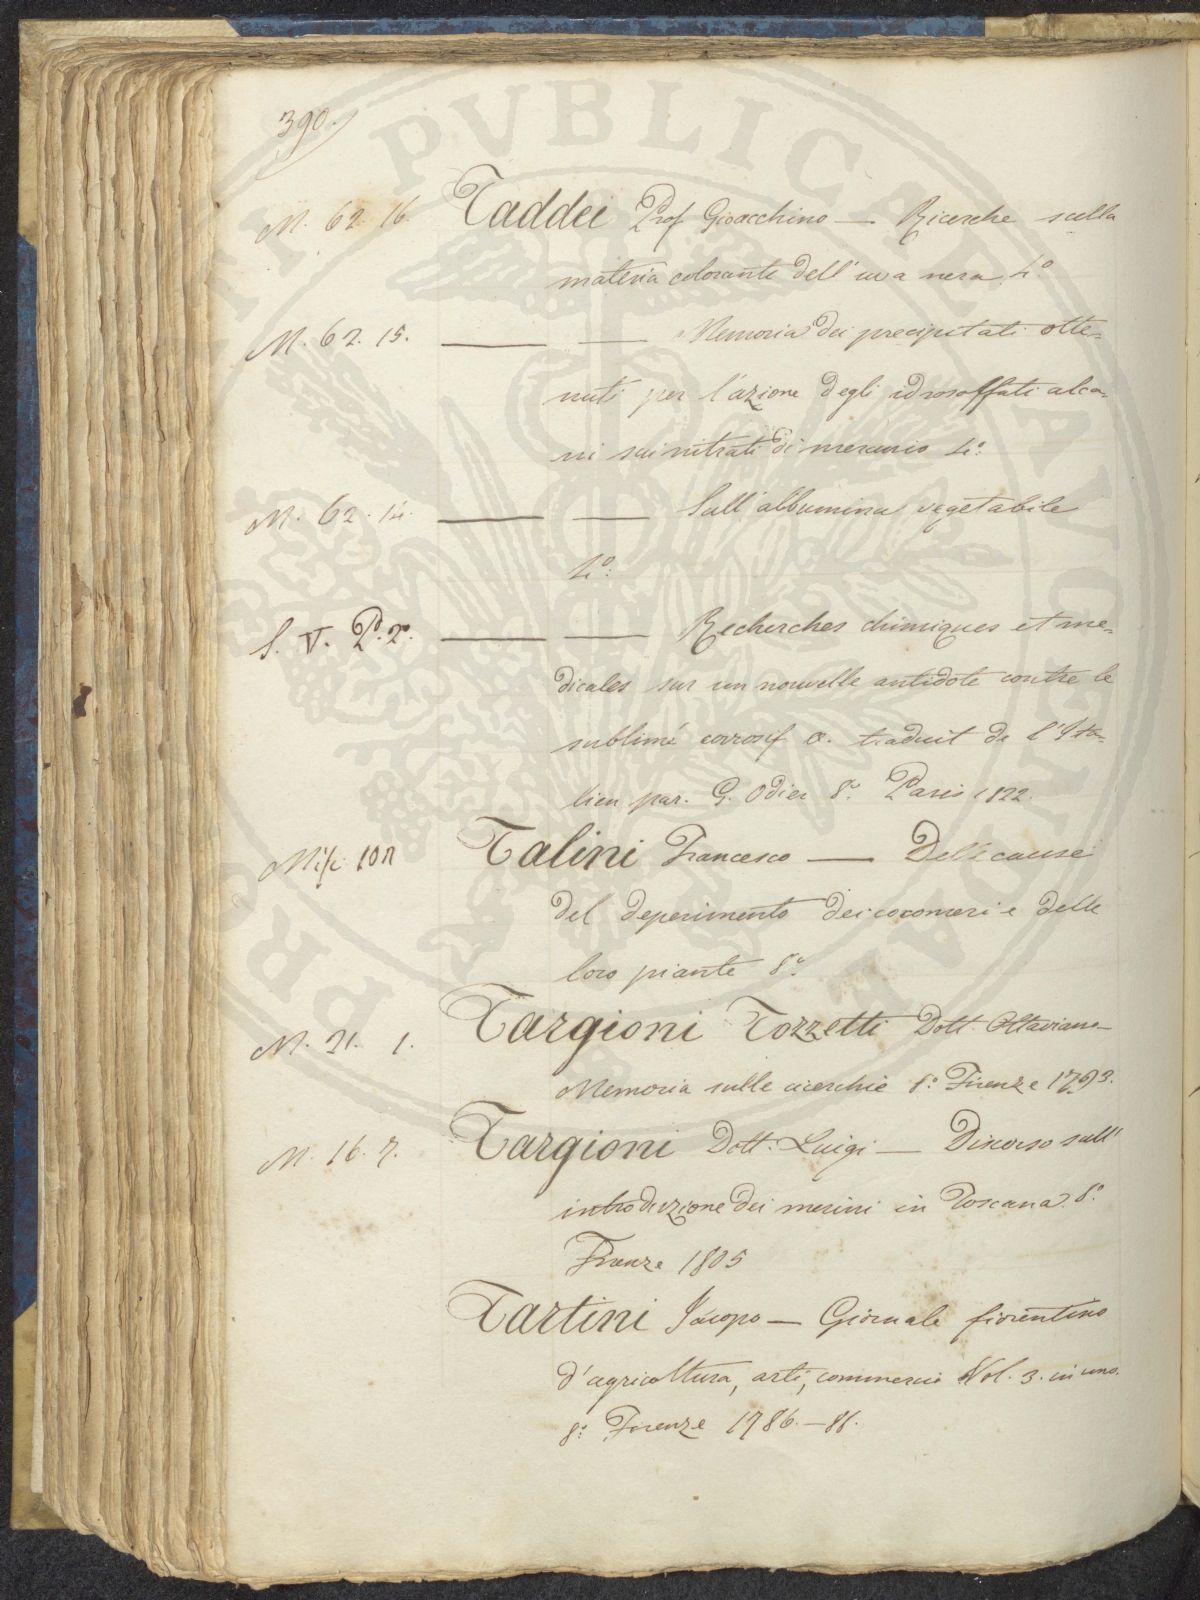 390.
M. 62. 16. Taddei Prof Gioacchino — Ricerche sulla
materia colorante dell'uva nera 4.o
M. 62. 15. — — Memoria dei precipitati otte-
nuti per l'azione degli idrosolfati alca-
ni sui nitrati di mercurio 4.o
M. 62. 14. — — Sull'albumina vegetabile
4.o
S. V. P.o 2.o — — Recherches chimiques et me-
dicales sur un nouvelle antidote contre le
sublimé corrosif &. traduit de l'Ita-
lien par. G. Odier 8.o Paris 1822.
Misc. 107 Talini Francesco — Delle cause
del deperimento dei cocomeri e delle
loro piante 8.o
M. 21. 1. Targioni Tozzetti Dott. Ottaviano—
Memoria sulle cicerchie 8.o Firenze 1793.
M. 16. 7. Targioni Dott. Luigi — Discorso sull'
introduzione dei merini in Toscana. 8.o
Firenze 1805
Tartini Jacopo — Giornale fiorentino
d'agricoltura, arti, commercio Vol. 3. in uno.
8.o Firenze 1786.—
PUBLICAE